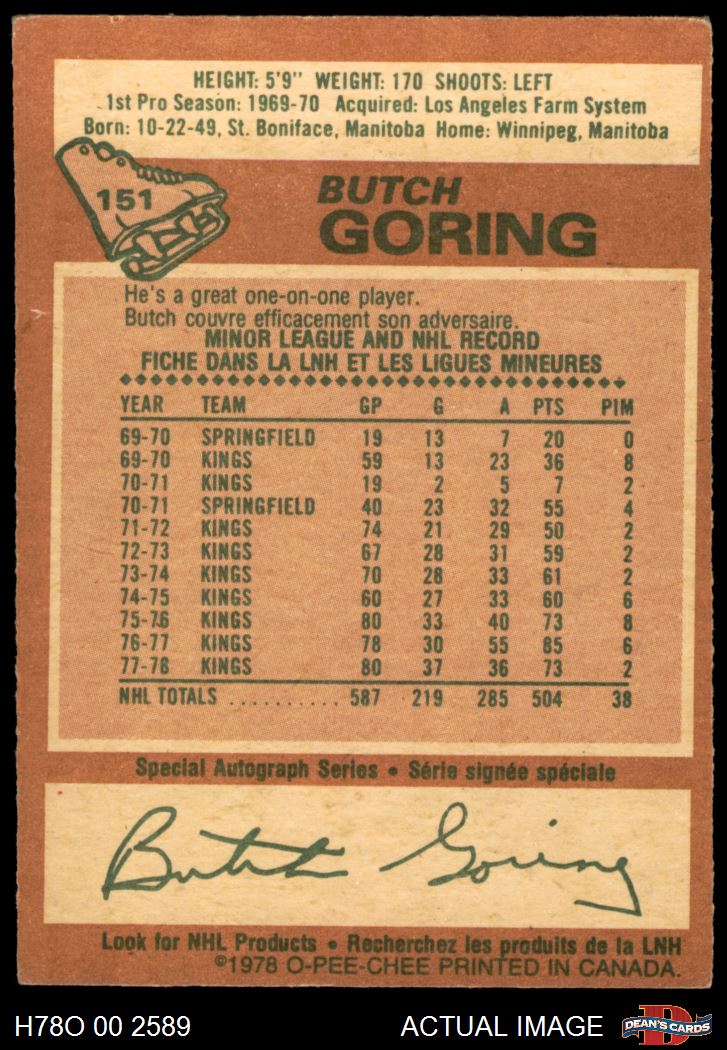 HEIGHT: 5'9" WEIGHT: 170 SHOOTS: LEFT
1st Pro Season: 1969-70 Acquired: Los Angeles Farm System
Born: 10-22-49, St. Boniface, Manitoba Home: Winnipeg, Manitoba
151
BUTCH
GORING
He's a great one-on-one player.
Butch couvre efficacement son adversaire.
MINOR LEAGUE AND NHL RECORD
FICHE DANS LA LNH ET LES LIGUES MINEURES
YEAR TEAM GP G A PTS PIM
69-70 SPRINGFIELD 19 13 7 20 0
69-70 KINGS 59 13 23 36 8
70-71 KINGS 19 2 5 7 2
70-71 SPRINGFIELD 40 23 32 55 4
71-72 KINGS 74 21 29 50 2
72-73 KINGS 67 28 31 59 2
73-74 KINGS 70 28 33 61 2
74-75 KINGS 60 27 33 60 6
75-76 KINGS 80 33 40 73 8
76-77 KINGS 78 30 55 85 6
77-78 KINGS 80 37 36 73 2
NHL TOTALS .......... 587 219 285 504 38
Special Autograph Series • Série signée spéciale
Butch Goring
Look for NHL Products • Recherchez les produits de la LNH
©1978 O-PEE-CHEE PRINTED IN CANADA.
H78O 00 2589 ACTUAL IMAGE D DEAN'S CARDS